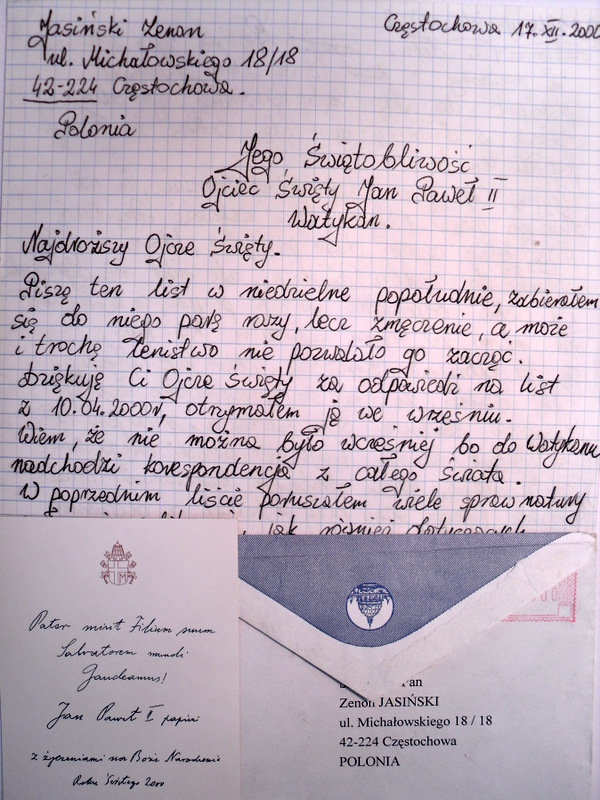 Jasiński Zenon
Częstochowa 17.XII.2000
ul. Michałowskiego 18/18
42-224 Częstochowa.
Polonia
Jego Świątobliwość
Ojciec Święty Jan Paweł II
Watykan.
Najdroższy Ojcze Święty.
Piszę ten list w niedzielne popołudnie, zabierałem
się do niego parę razy, lecz zmęczenie, a może
i trochę lenistwo nie pozwalało go zacząć.
Dziękuję Ci Ojcze Święty za odpowiedź na list
z 10.04.2000r, otrzymałem ją we wrześniu.
Wiem, że nie można było wcześniej bo do Watykanu
nadchodzi korespondencja z całego świata.
W poprzednim liście poruszałem wiele spraw natury
jak również dotyczących
Pater misit Filium suum
Salvatorem mundi
Gaudeamus!
Jan Paweł II papież
z życzeniami na Boże Narodzenie
Roku Świętego 2000
Pan
Zenon JASIŃSKI
ul. Michałowskiego 18 / 18
42-224 Częstochowa
POLONIA